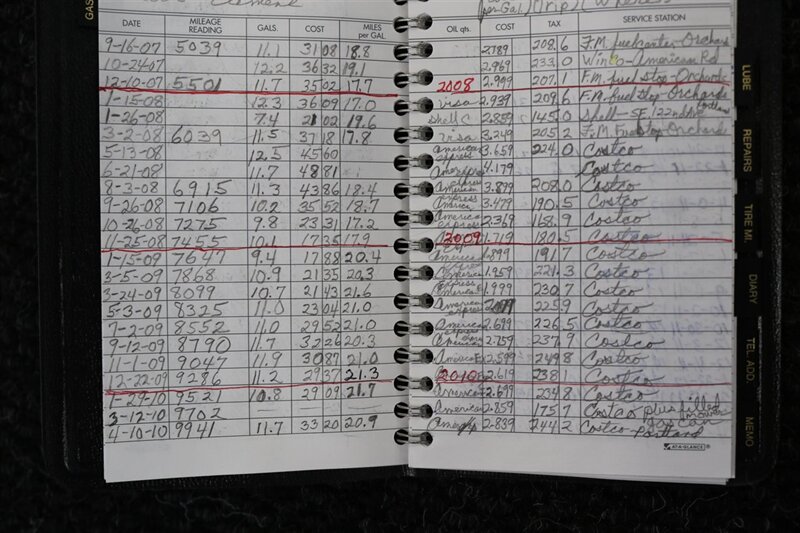 GAS
Clement
per Gal) (Trip)
DATE MILEAGE READING GALS. COST MILES per GAL. Oil, qts. COST TAX SERVICE STATION
9-16-07 5039 11.1 31 08 18.8 2.789 208.6 F.M. fuelcenter-Orchards
10-24-07 12.2 36 32 19.1 2.969 233.0 Winco-American Rd
12-10-07 5501 11.7 35 02 17.7 2008 2.999 207.1 F.M. fuel stop-Orchards
1-15-08 12.3 36 09 17.0 visa 2.939 209.6 F.M. fuel stop-Orchards
1-26-08 7.4 21 02 19.6 shell C 2.859 145.0 Shell-SE. 122nd Ave Portland
3-2-08 6039 11.5 37 18 17.8 visa 3.249 205.2 F.M. Fuel stop-Orchards
5-13-08 12.5 45 60 American express 3.659 224.0 Costco
6-21-08 11.7 48 81 4.179 Costco
8-3-08 6915 11.3 43 86 18.4 American express 3.879 208.0 Costco
9-26-08 7106 10.2 35 52 18.7 American express 3.479 190.5 Costco
10-26-08 7275 9.8 23 31 17.2 American express 2.379 168.9 Costco
11-25-08 7455 10.1 17 35 17.9 2009 1.719 180.5 Costco
1-15-09 7647 9.4 17 88 20.4 American 1.899 191.7 Costco
3-5-09 7868 10.9 21 35 20.3 American 1.959 221.3 Costco
3-24-09 8099 10.7 21 43 21.6 express American 1.999 230.7 Costco
5-3-09 8325 11.0 23 04 21.0 American express 2.099 225.9 Costco
7-2-09 8552 11.0 29 52 21.0 American 2.699 226.5 Costco
9-12-09 8790 11.7 32 26 20.3 American 2.759 237.9 Costco
11-1-09 9047 11.9 30 87 21.0 American 2.599 249.8 Costco
12-22-09 9286 11.2 29 37 21.3 2010 2.619 238.1 Costco
1-29-10 9521 10.8 29 09 21.7 American 2.699 234.8 Costco
3-12-10 9702 — — — American 2.859 175.7 Costco plus filled mower gas can
4-10-10 9941 11.7 33 20 20.9 2.839 244.2 Costco Portland
AT-A-GLANCE
LUBE
REPAIRS
TIRE MI.
DIARY
TEL. ADD.
MEMO